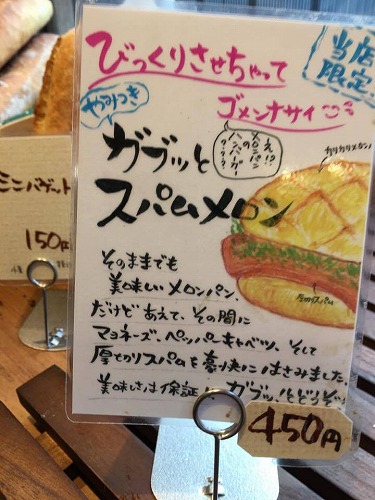 びっくりさせちゃって
ゴメンナサイ
当店
限定
やみつき
え!?
メロンパン
の
ハンバーガー
????
ガブッと
スパムメロン
カリカリメロン♪
厚切りスパム
そのままでも
美味しいメロンパン、
だけどあえて、その間に
マヨネーズ、ペッパーキャベツ、そして
厚切りスパムを豪快にはさみました。
美味しさは保証
ガブッとどうぞ
450円
ミニバゲット
150円